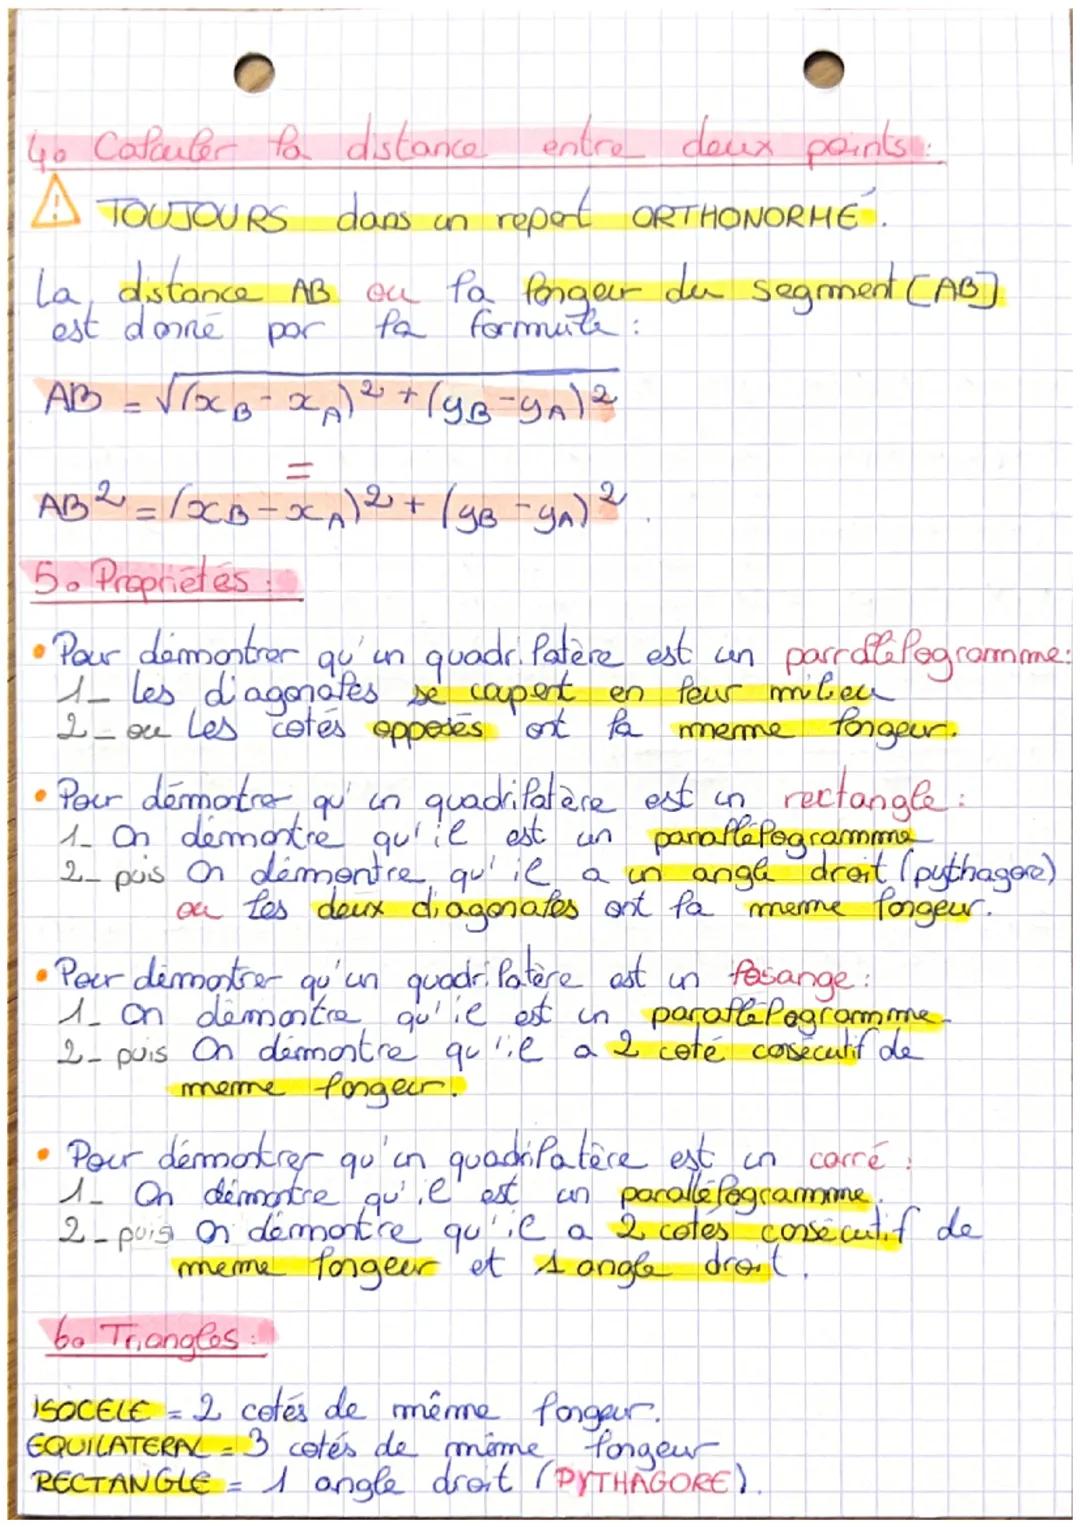 4. Calculer la distance entre deux points :
TOUJOURS dans un repert ORTHONORMÉ.
La distance AB ou la longeur du segment [AB]
est donné par la formule :
AB = √(xB - xA)² + (yB - yA)²
=
AB² = (xB - xA)² + (yB - yA)².
5. Propriétés :
• Pour démontrer qu'un quadrilatère est un parrallélogramme :
1_ Les diagonales se coupent en leur milieu
2_ ou Les cotés opposés ont la meme longeur.
• Pour démontrer qu'un quadrilatère est un rectangle :
1_ On démontre qu'il est un parallélogramme
2_ puis On démontre qu'il a un angle droit (pythagore)
ou les deux diagonales ont la meme longeur.
• Pour démontrer qu'un quadrilatère est un losange :
1_ On démontre qu'il est un parallélogramme
2_ puis On démontre qu'il a 2 coté consécutif de
meme longeur.
• Pour démontrer qu'un quadrilatère est un carré :
1_ On démontre qu'il est un parallélogramme.
2_ puis On démontre qu'il a 2 cotes consécutif de
meme longeur et 1 angle droit.
6. Triangles :
ISOCELE = 2 cotés de même longeur.
EQUILATERAL = 3 cotés de même longeur
RECTANGLE = 1 angle droit (PYTHAGORE).